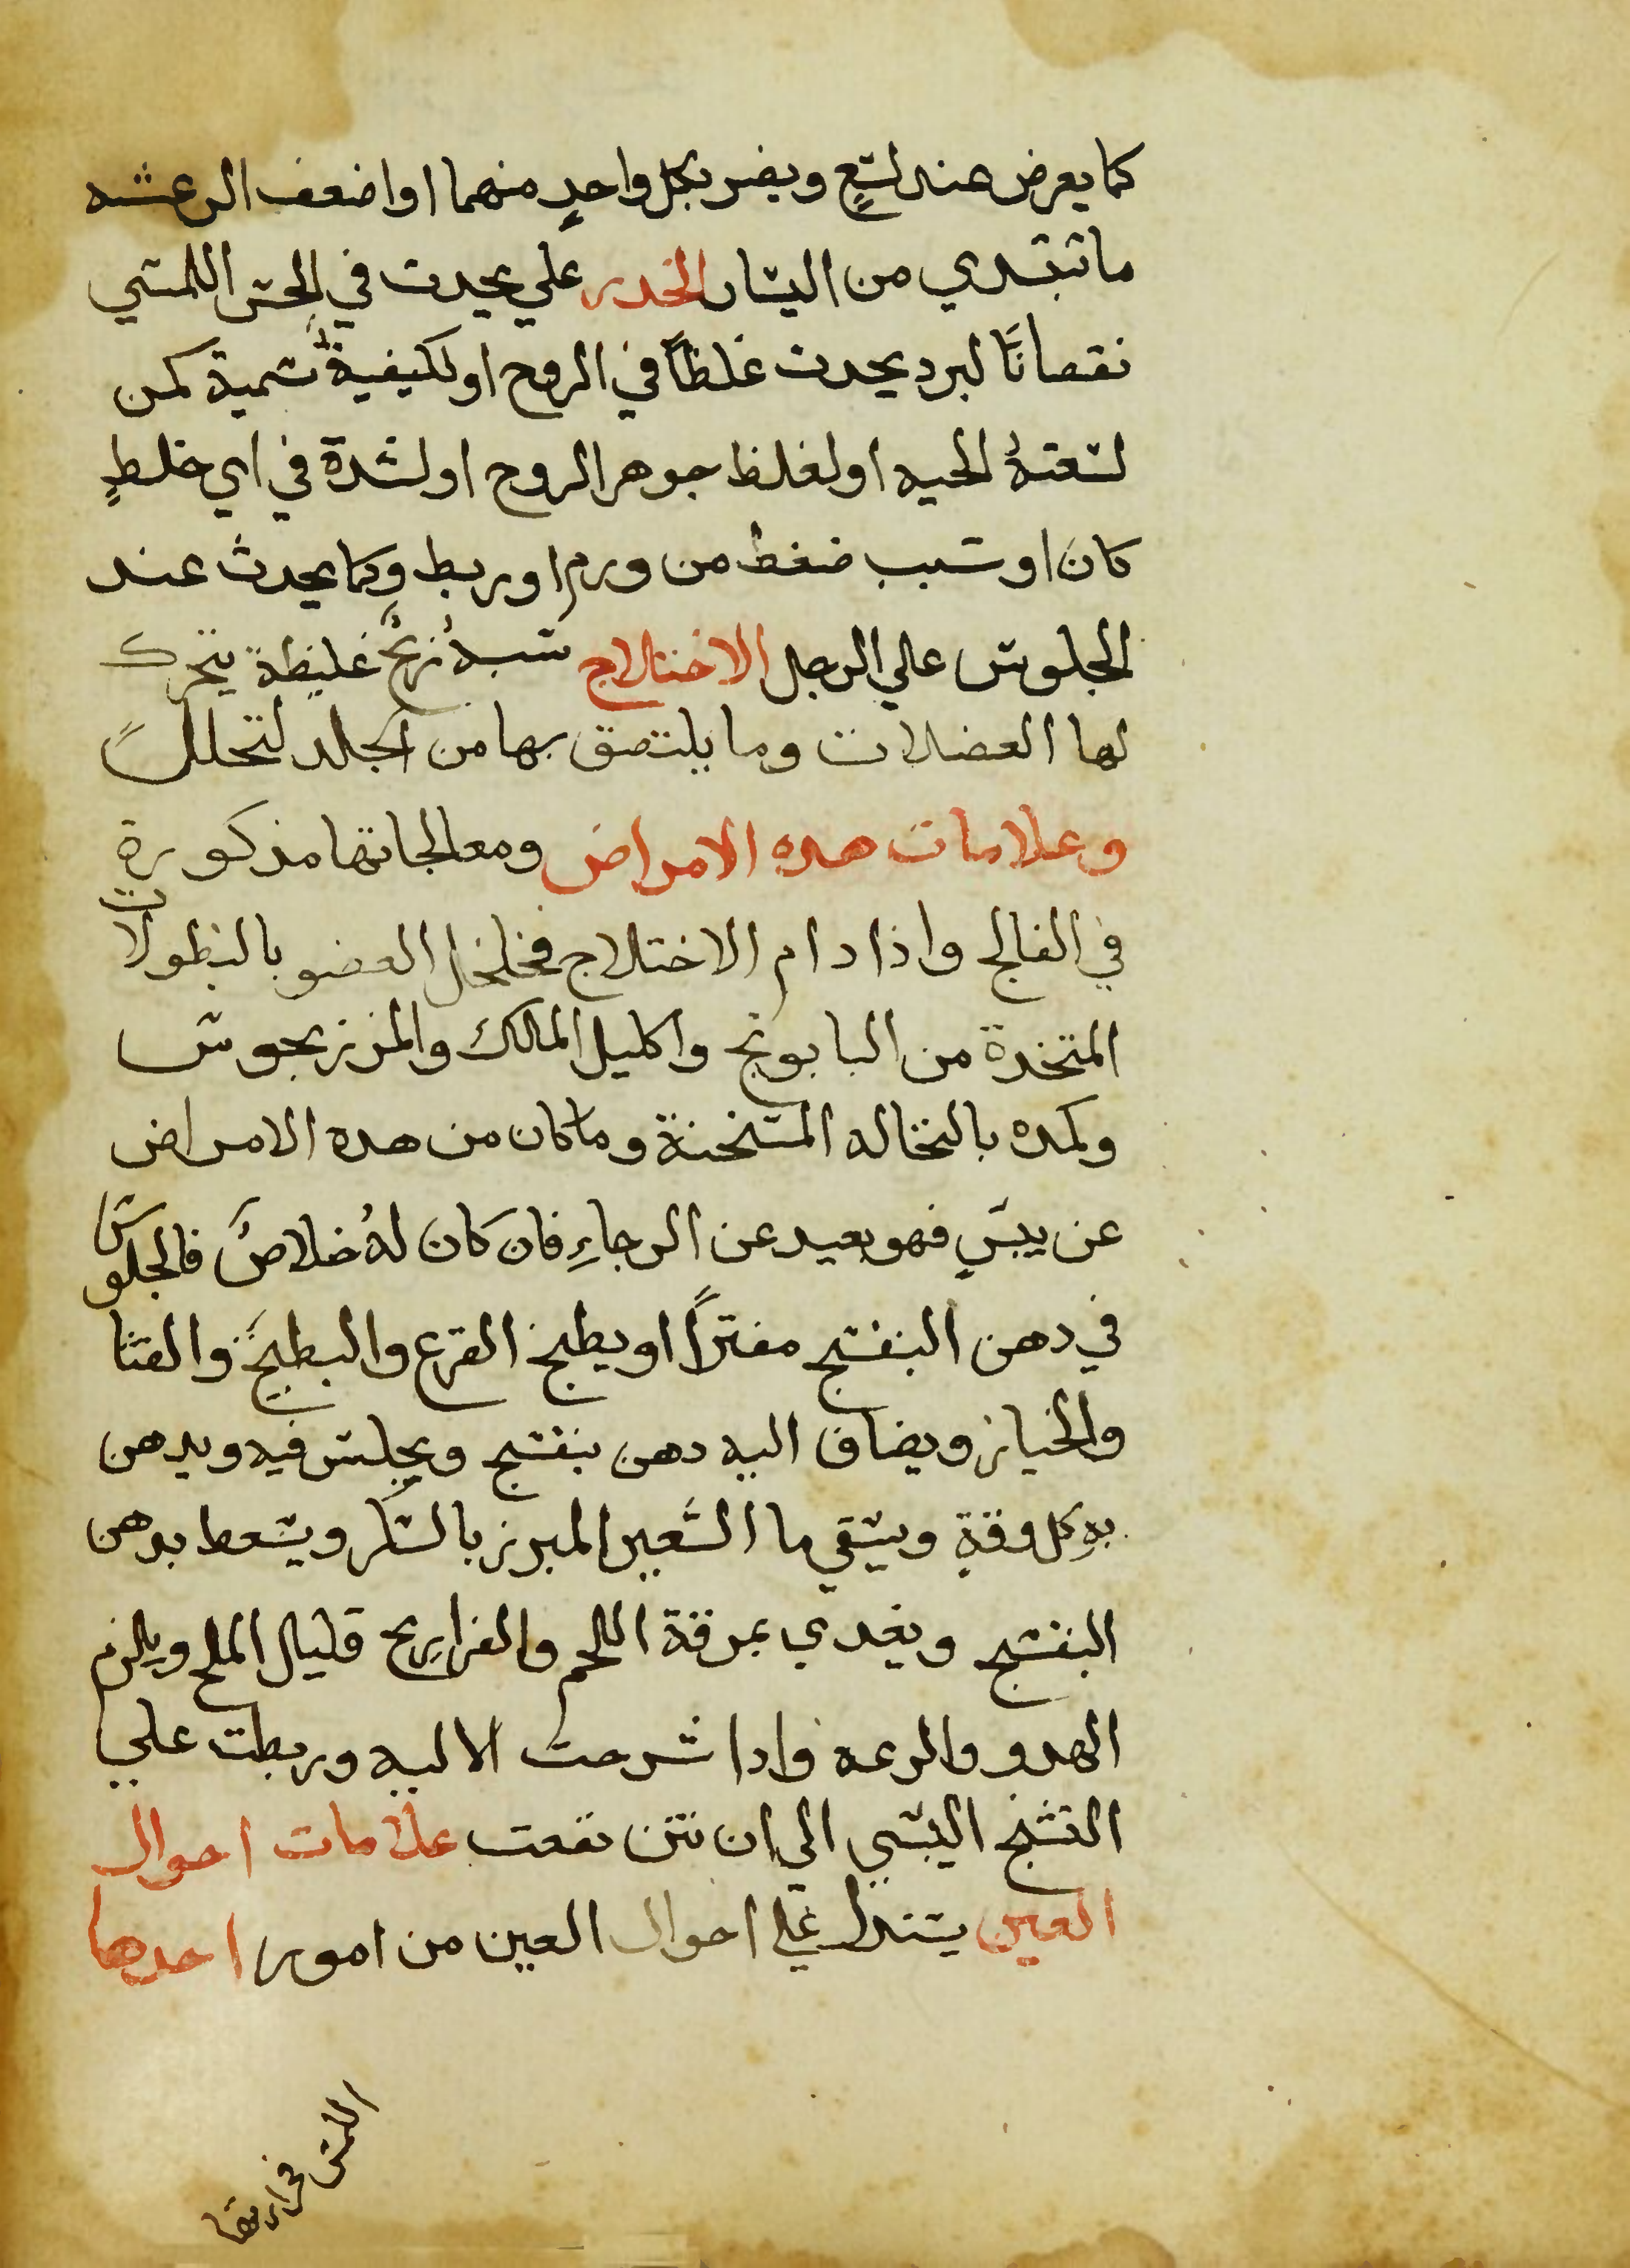 كما يعرض عند لسع ويضر بكل واحدٍ منهما او اضعف الرعشه
ما تبتدي من اليسار الخدر على يحدث في الحس اللمسي
نقصانًا لبرد يحدث غلظًا في الروح او لكيفية سمية كمن
لسعتهُ الحيه او لغلظ جوهر الروح او لسدة في اي خلطٍ
كان او سبب ضغط من ورم او ربط وكما يحدث عند
الجلوس علي الرجل الاختلاج سببهُ ريحٌ غليظة يتحرك
لها العضلات وما يلتصق بها من الجلد لتحلل
وعلامات هده الامراض ومعالجاتها مذكورة
في الفالج واذا دام الاختلاج فخلخل العضو بالنطولات
المتخذة من البابونج واكليل المالك والمرزنجوس
وكمده بالنخاله المسخنة وما كان من هده الامراض
عن يبسٍ فهو بعيد عن الرجاءِ فان كان لهُ خلاصٌ فالجلوس
في دهن البنفسج مفترًا او يطبخ القرع والبطيخ والقثا
والخيار ويضاف اليه دهن بنفسج ويجلس فيه ويدهن
بهِ كل وقةٍ ويسقي ما الشعير المبرز بالسكر ويسعط بدهن
البنفسج ويغدي بمرقة اللحم والفراريح قليل الملح ويلزم
الهدو والدعه وادا شرحت الاليه وربطت علي
التشنج اليبسي الي ان تنتن نفعت علامات احوال
العين يستدل علي احوال العين من امور احدها
اللمس في حرارتها